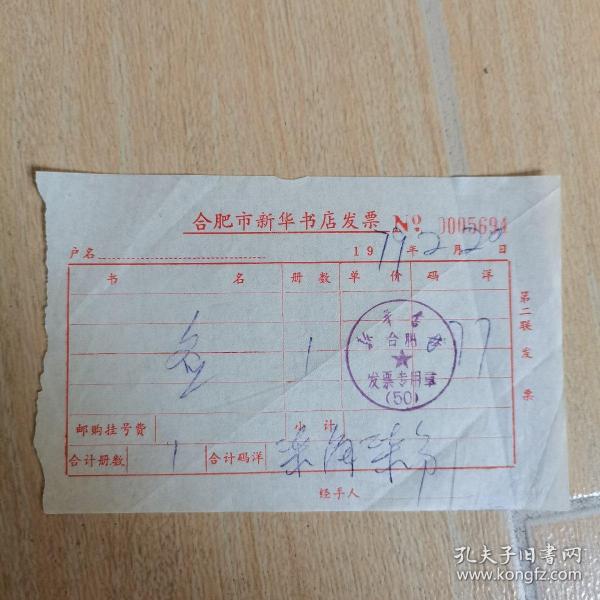 合肥市新华书店发票 No 0005694
户名 1979年2月22日
书名 册数 单价 码洋
1 77
新华书店
合肥
发票专用章
(50)
邮购挂号费 小计
合计册数 1 合计码洋 柒角柒分
经手人
第二联发票
孔夫子旧书网
www.kongfz.com